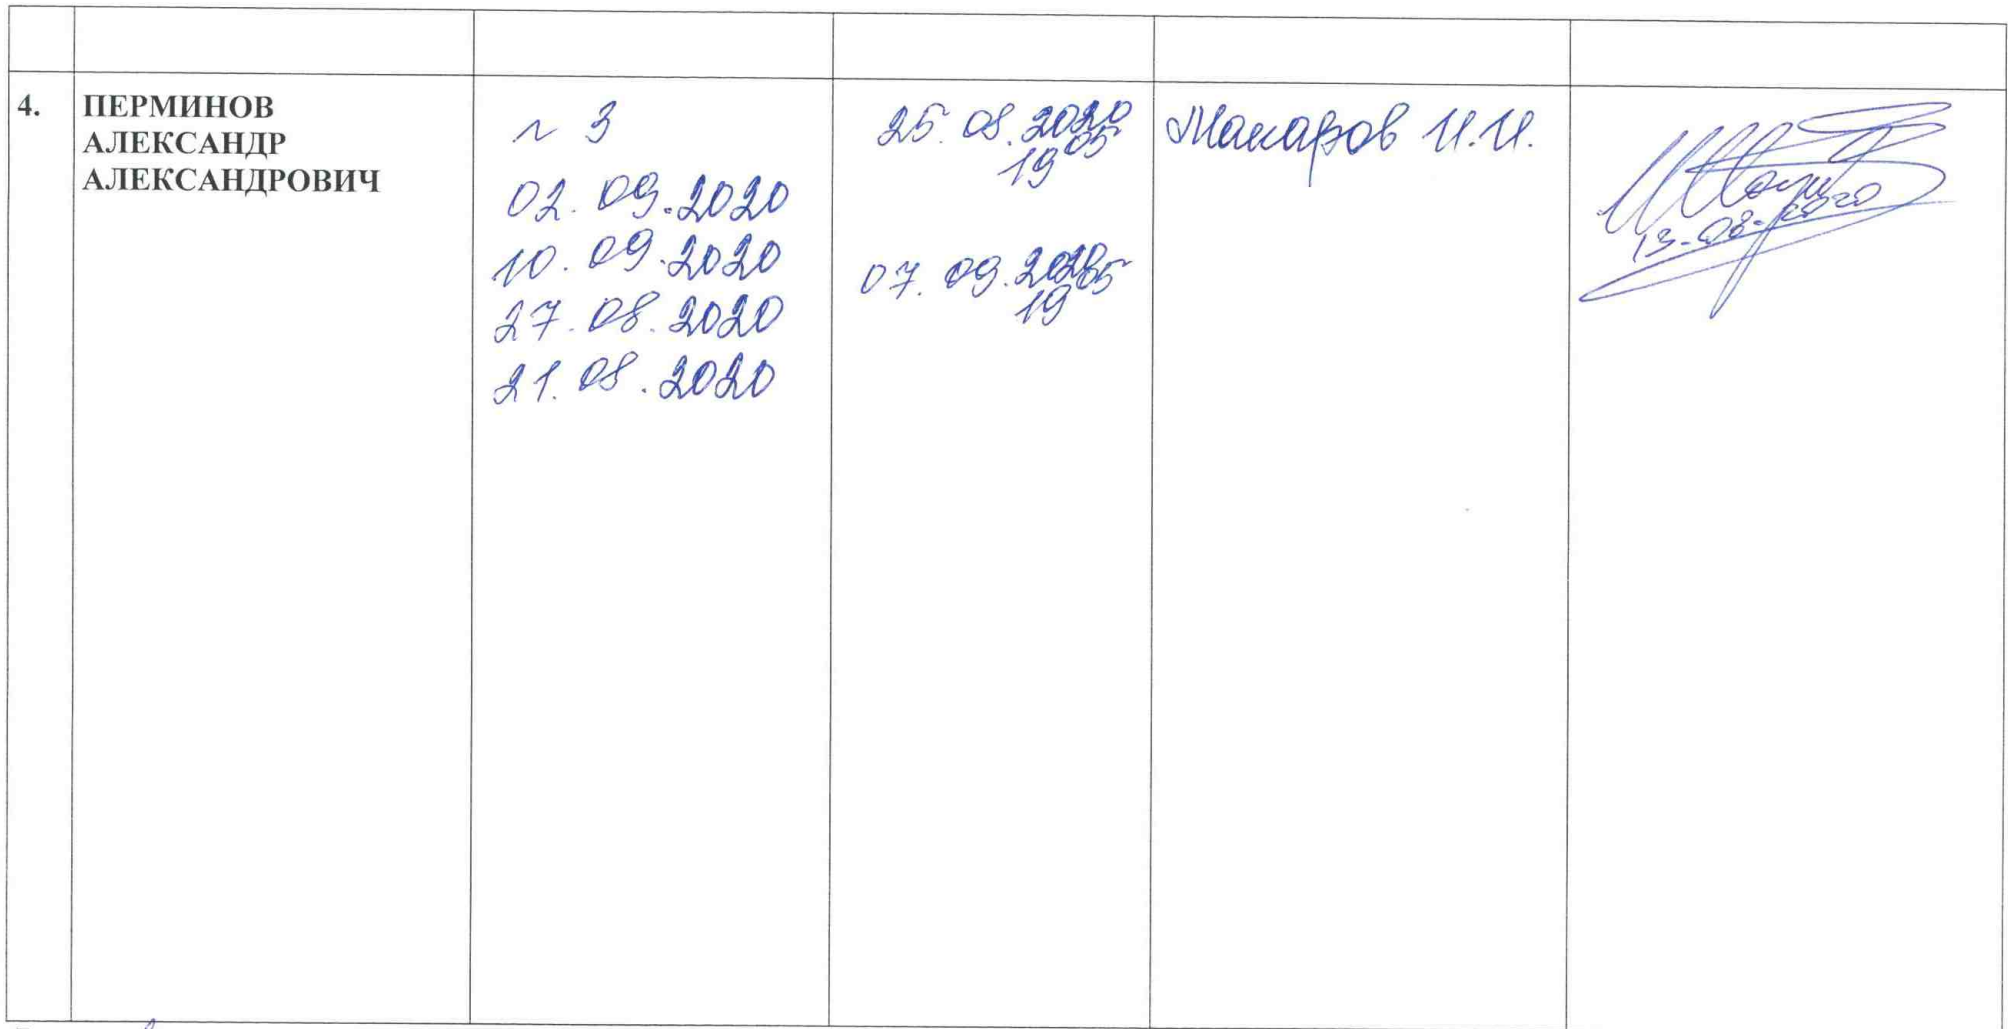 4.
ПЕРМИНОВ
АЛЕКСАНДР
АЛЕКСАНДРОВИЧ
№ 3
02.09.2020
10.09.2020
27.08.2020
21.08.2020
25.08.2020
19 05
07.09.2020
19 05
Макаров И.И.
13-08-2020